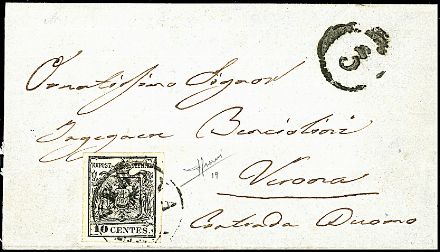 Ornatissimo Signor
Ingegnere
Verona
Contrada Duomo
KKPOST-STEMPEL
10 CENTES.